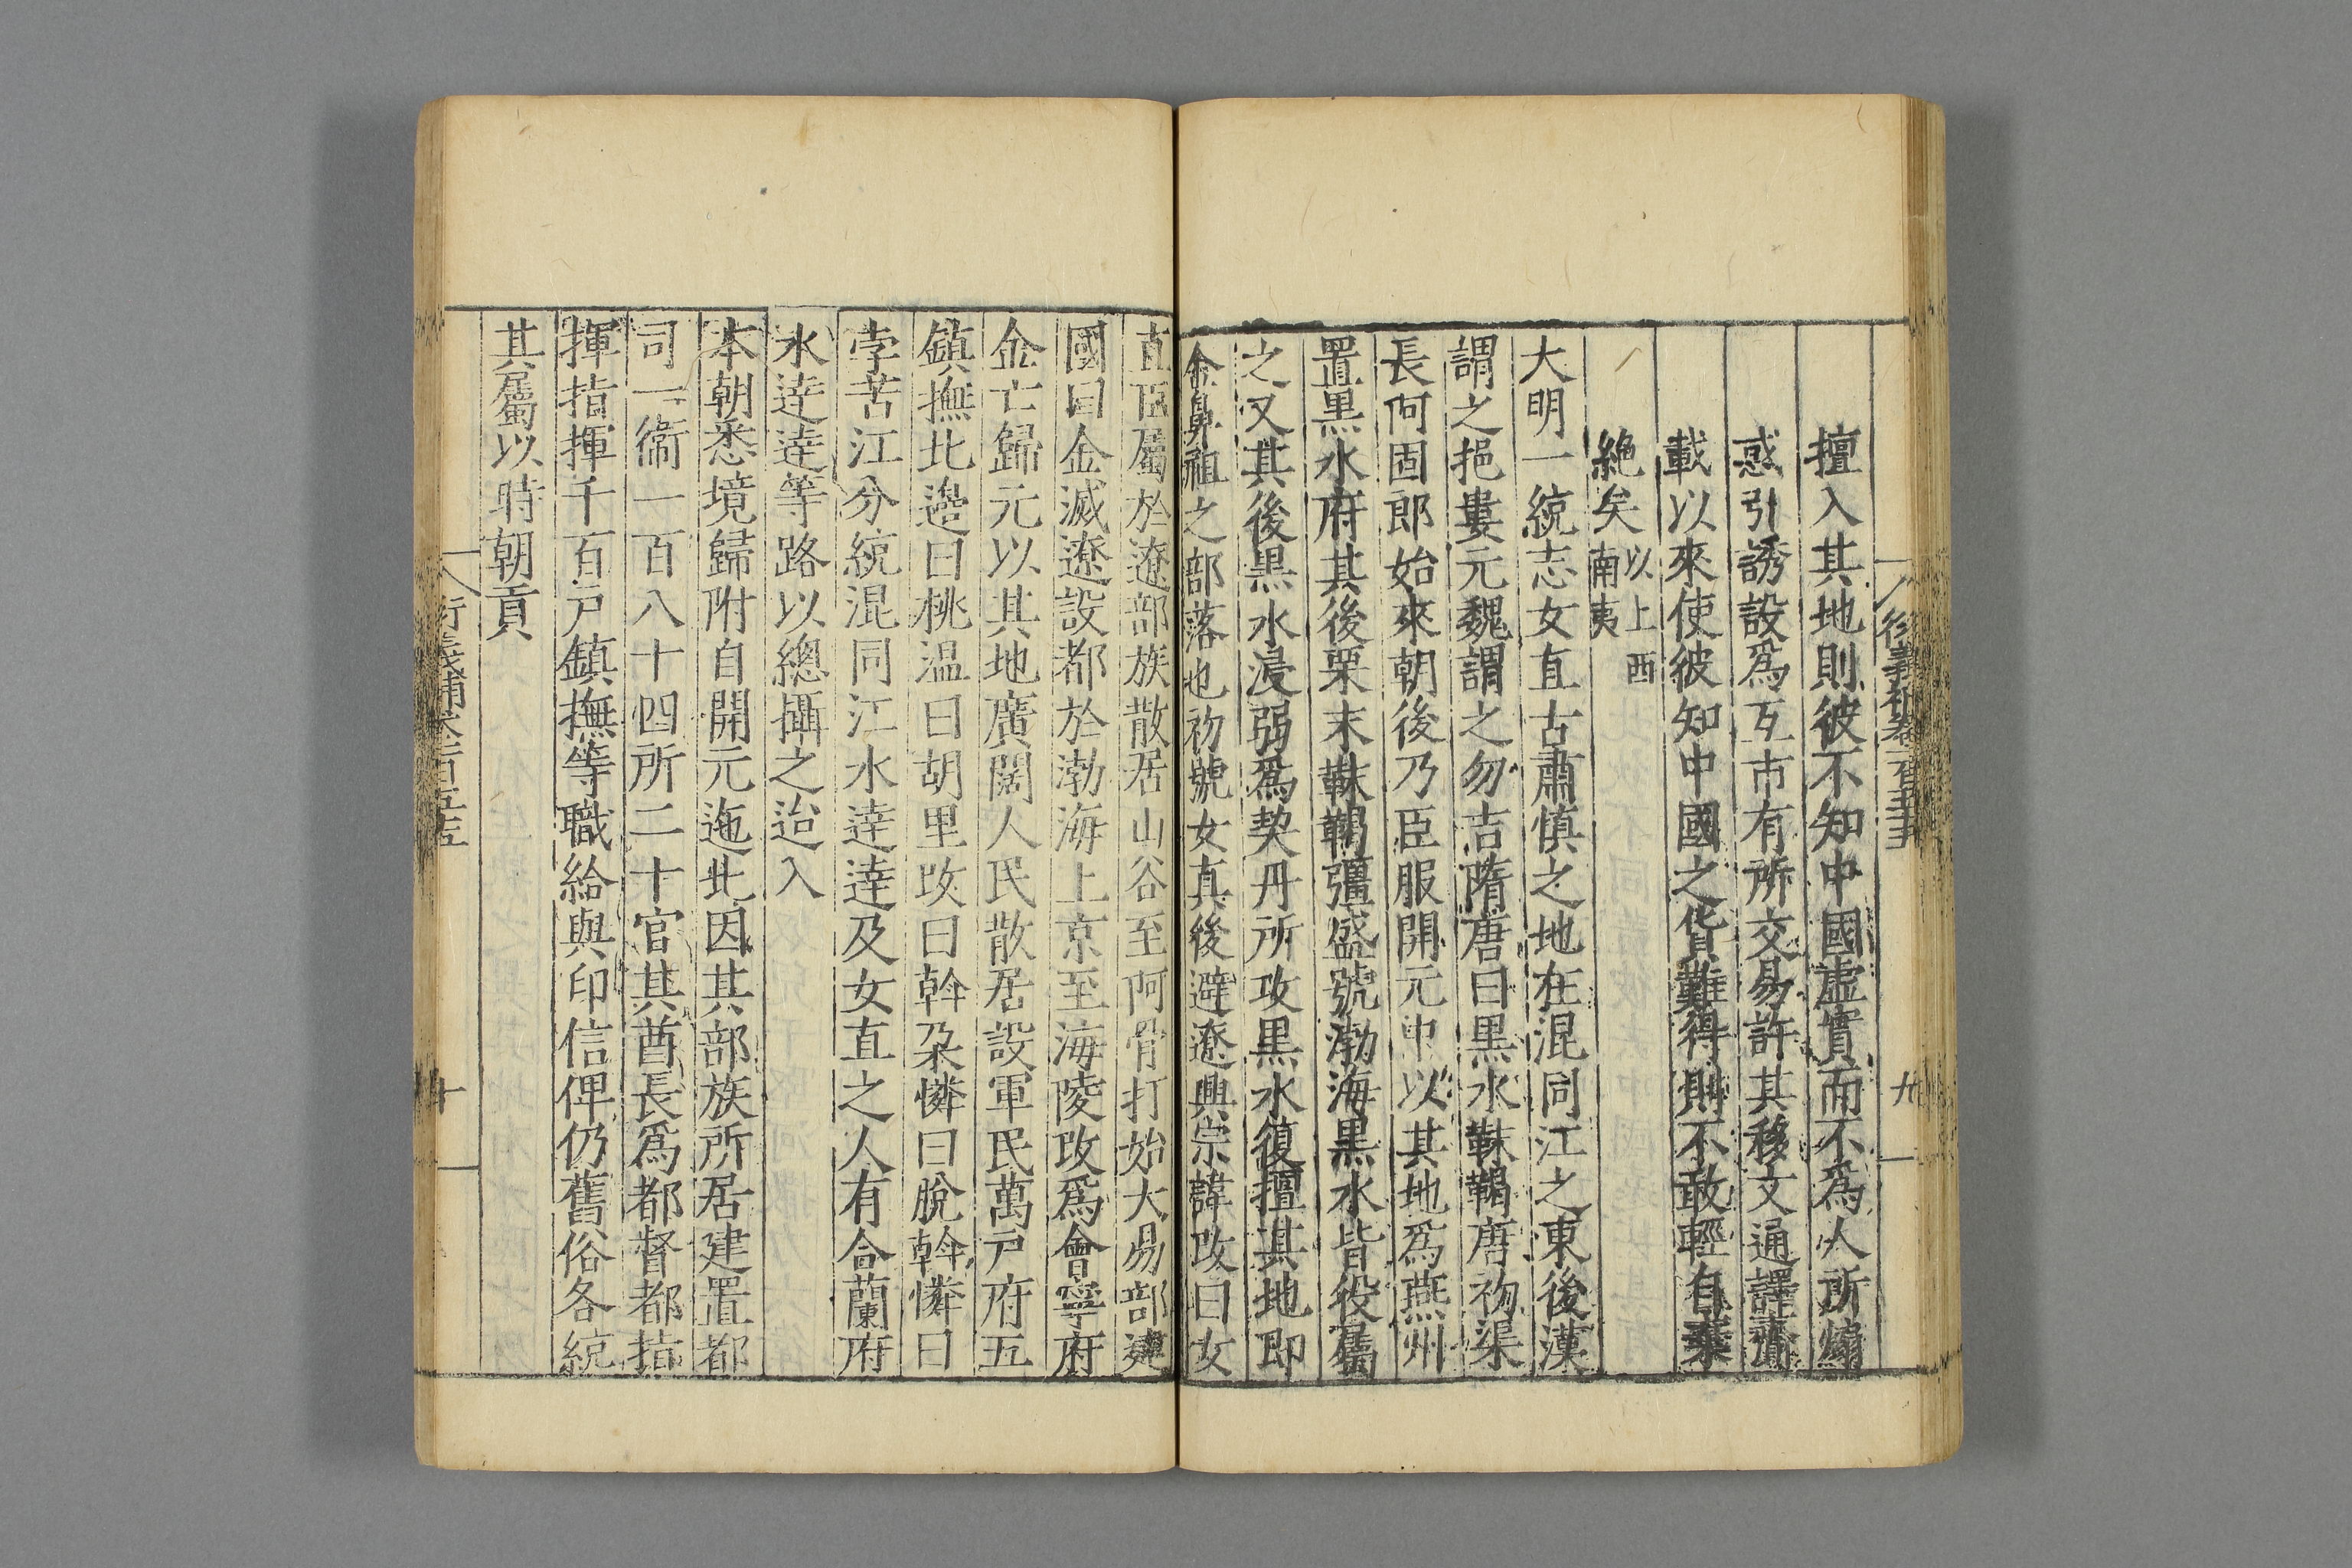 擅入其地則彼不知中國虛實而不為人所煽
惑引誘設為互市有所交易許其移文通譯齎
載以來使彼知中國之貨難得則不敢輕自棄
絶矣以上西南夷
大明一統志女直古肅慎之地在混同江之東後漢
謂之挹婁元魏謂之勿吉隋唐曰黑水靺鞨唐初渠
長阿固郎始來朝後乃臣服開元中以其地為燕州
置黑水府其後粟末靺鞨彊盛號渤海黑水皆役屬
之又其後黑水浸弱為契丹所攻黑水復擅其地即
金鼻祖之部落也初號女真後避遼興宗諱改曰女
直臣屬於遼部族散居山谷至阿骨打始大易部建
國曰金滅遼設都於渤海上京至海陵改為會寧府
金亡歸元以其地廣闊人民散居設軍民萬戶府五
鎮撫北邊曰桃溫曰胡里改曰斡朶憐曰脫斡憐曰
孛苦江分統混同江水達達及女直之人有合蘭府
水達達等路以總攝之迨入
本朝悉境歸附自開元迤北因其部族所居建置都
司一衞一百八十四所二十官其酋長為都督都指
揮指揮千百戶鎮撫等職給與印信俾仍舊俗各統
其屬以時朝貢
衍義補卷一百五十
十